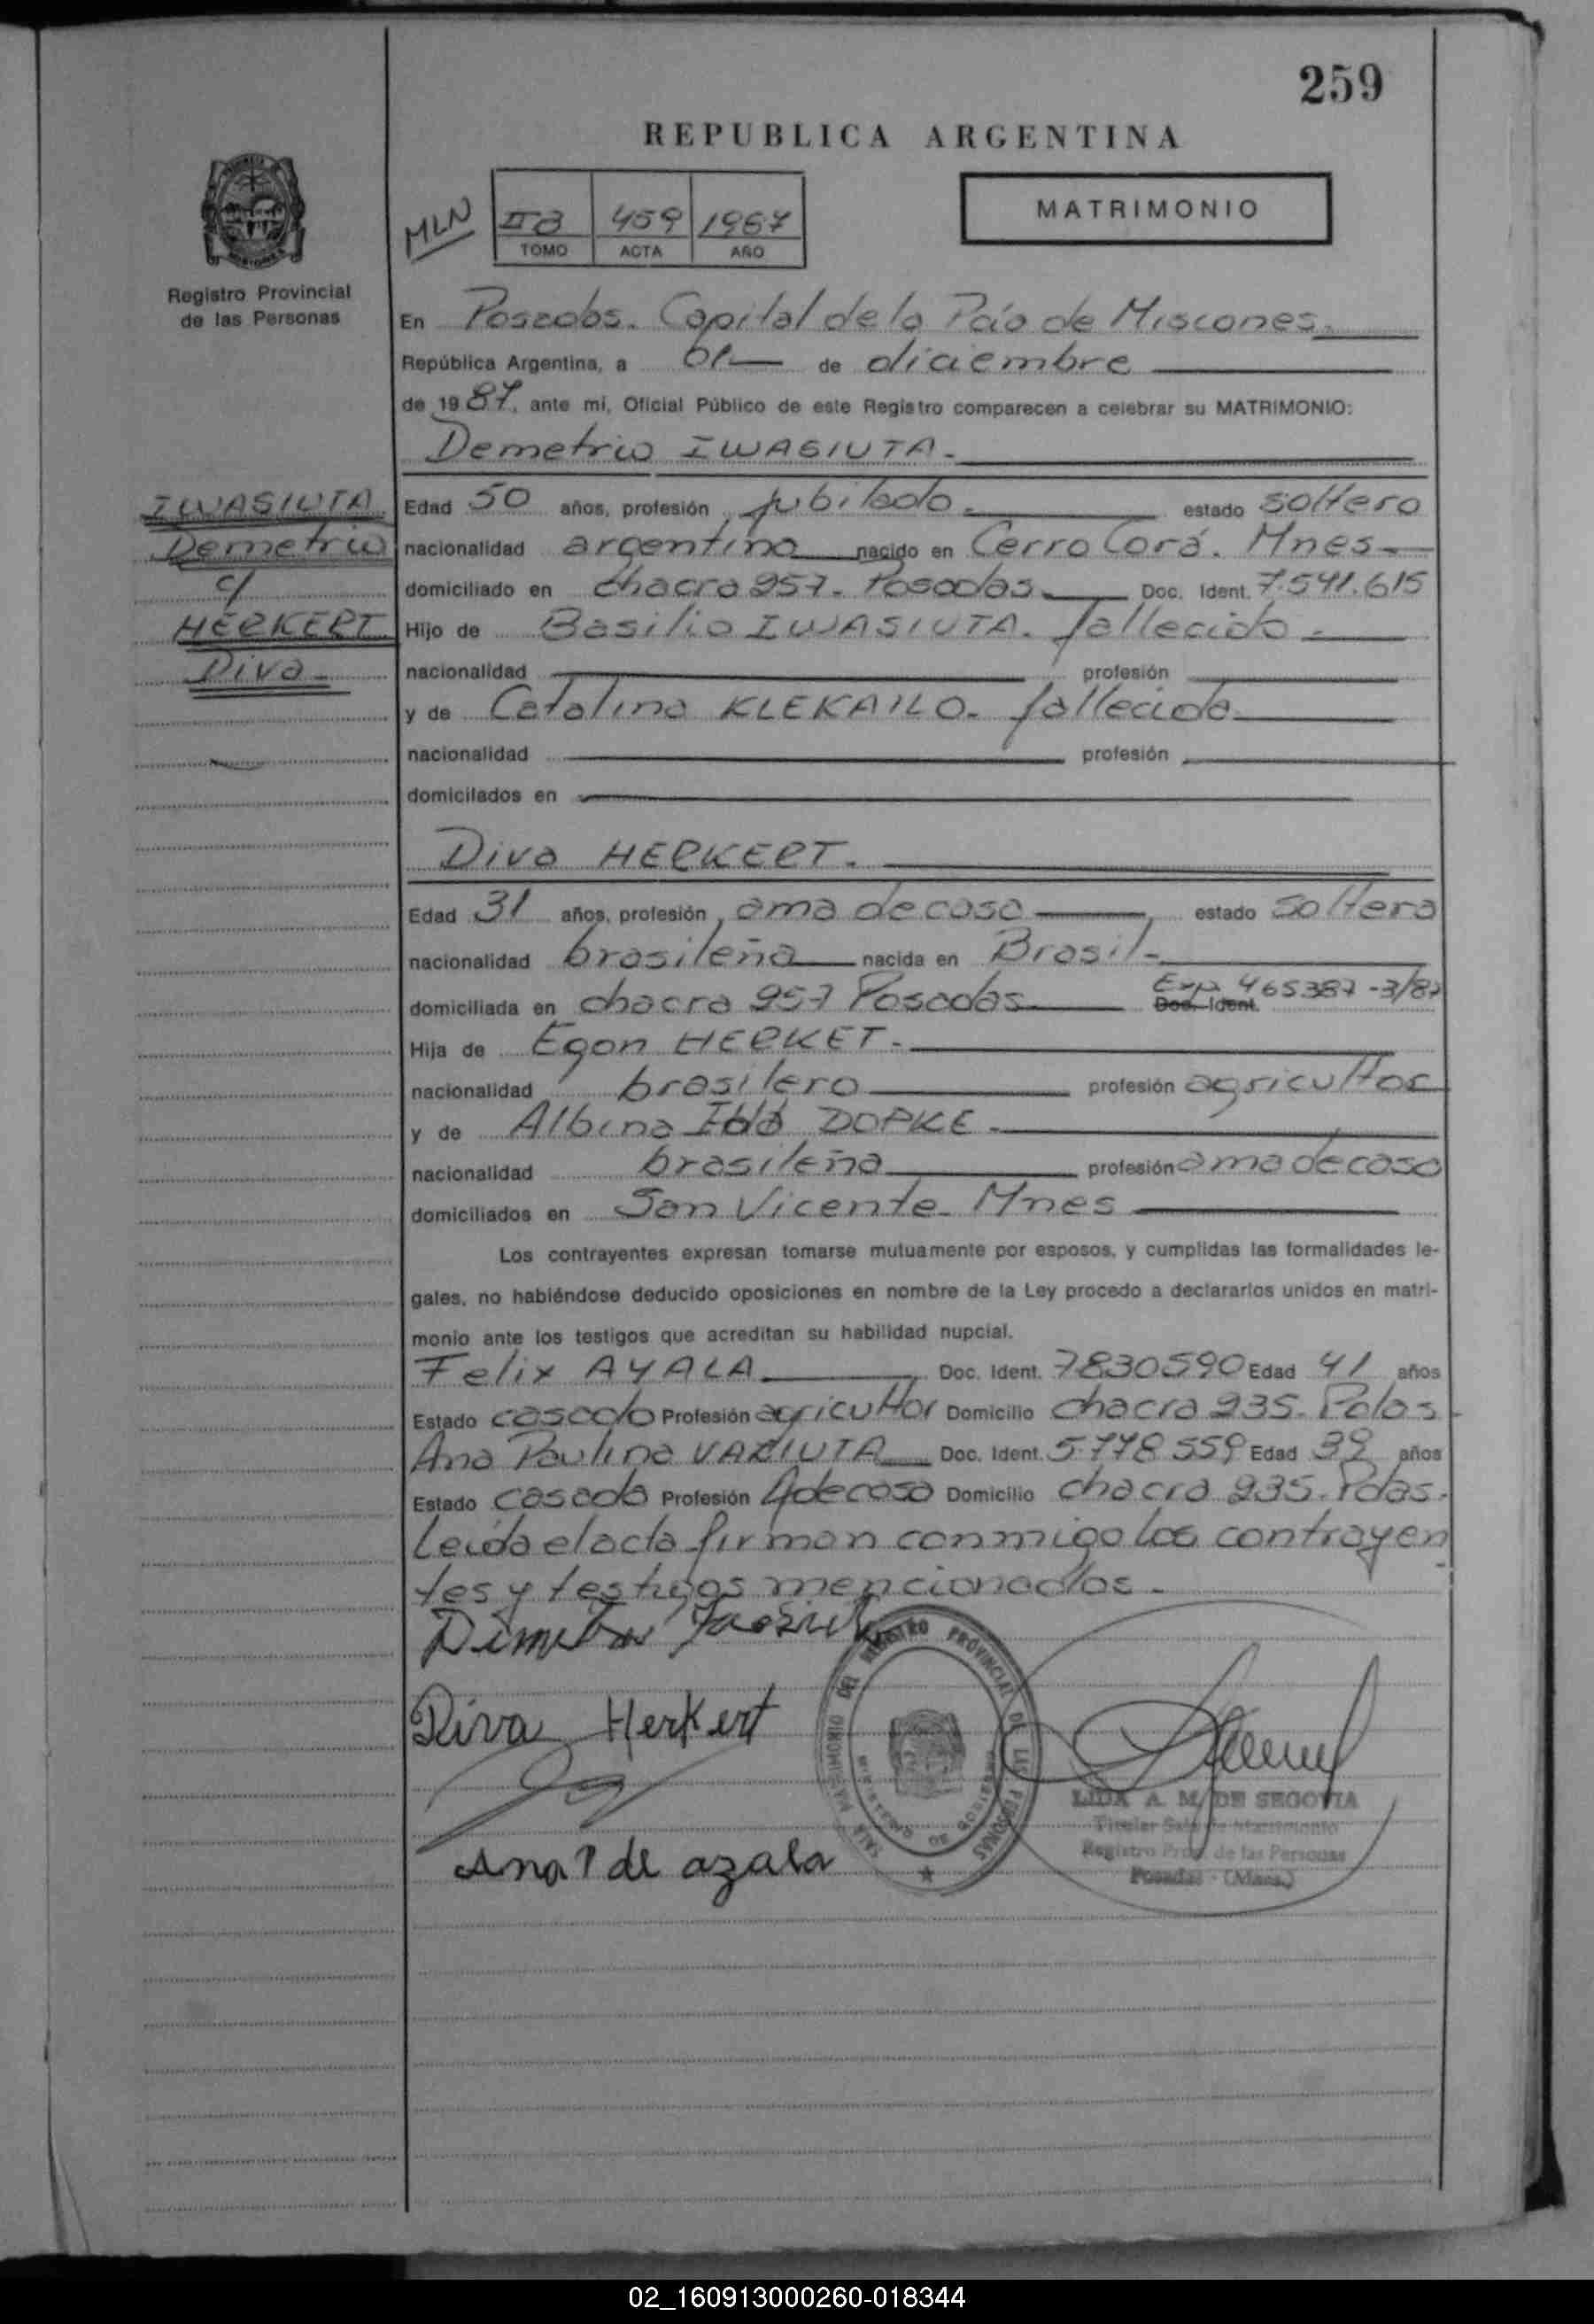 259
REPUBLICA ARGENTINA
MLN
IIa 459 1987
TOMO ACTA AÑO
MATRIMONIO
Registro Provincial
de las Personas
En Posadas. Capital de la Pcia de Misiones.
República Argentina, a 01 de diciembre
de 1987, ante mí, Oficial Público de este Registro comparecen a celebrar su MATRIMONIO:
Demetrio IWASIUTA.
IWASIUTA
Demetrio
c/
HERKERT
Diva
Edad 50 años, profesión jubilado. estado soltero
nacionalidad argentina nacido en Cerro Corá. Mnes
domiciliado en chacra 957. Posadas Doc. Ident. 7.541.615
Hijo de Basilio IWASIUTA. fallecido.
nacionalidad profesión
y de Catalina KLEKAILO. fallecida
nacionalidad profesión
domicilados en
Diva HERKERT.
Edad 31 años, profesión, ama de casa estado soltera
nacionalidad brasileña nacida en Brasil
domiciliada en chacra 957 Posadas Doc. Ident. Exp. 465387-3/87
Hija de Egon HERKET.
nacionalidad brasilero profesión agricultor
y de Albina Ida DOPKE.
nacionalidad brasileña profesión ama de casa
domiciliados en San Vicente Mnes
Los contrayentes expresan tomarse mutuamente por esposos, y cumplidas las formalidades le-
gales, no habiéndose deducido oposiciones en nombre de la Ley procedo a declararlos unidos en matri-
monio ante los testigos que acreditan su habilidad nupcial.
Felix AYALA Doc. Ident. 7830590 Edad 41 años
Estado casado Profesión agricultor Domicilio chacra 235. Pdas
Ana Paulina Doc. Ident. 5.778.559 Edad 39 años
Estado casada Profesión A de casa Domicilio chacra 235. Pdas.
Leida el acta firman conmigo los contrayen
tes y testigos mencionados.
Diva Herkert
Ana P de ayala
REGISTRO PROVINCIAL DE LAS PERSONAS
LIDA A. M. DE SEGOVIA
Titular Sala de Matrimonio
Registro Prov. de las Personas
Posadas - (Mnes.)
02_160913000260-018344